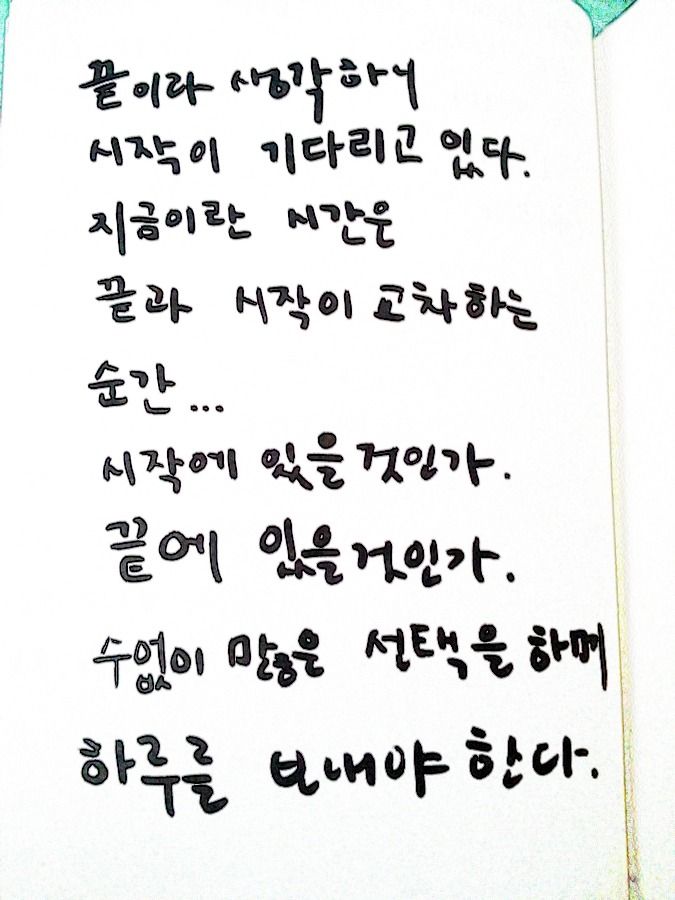 끝이라 생각하니
시작이 기다리고 있다.
지금이란 시간은
끝과 시작이 교차하는
순간...
시작에 있을것인가.
끝에 있을것인가.
수없이 많은 선택을 하며
하루를 보내야 한다.